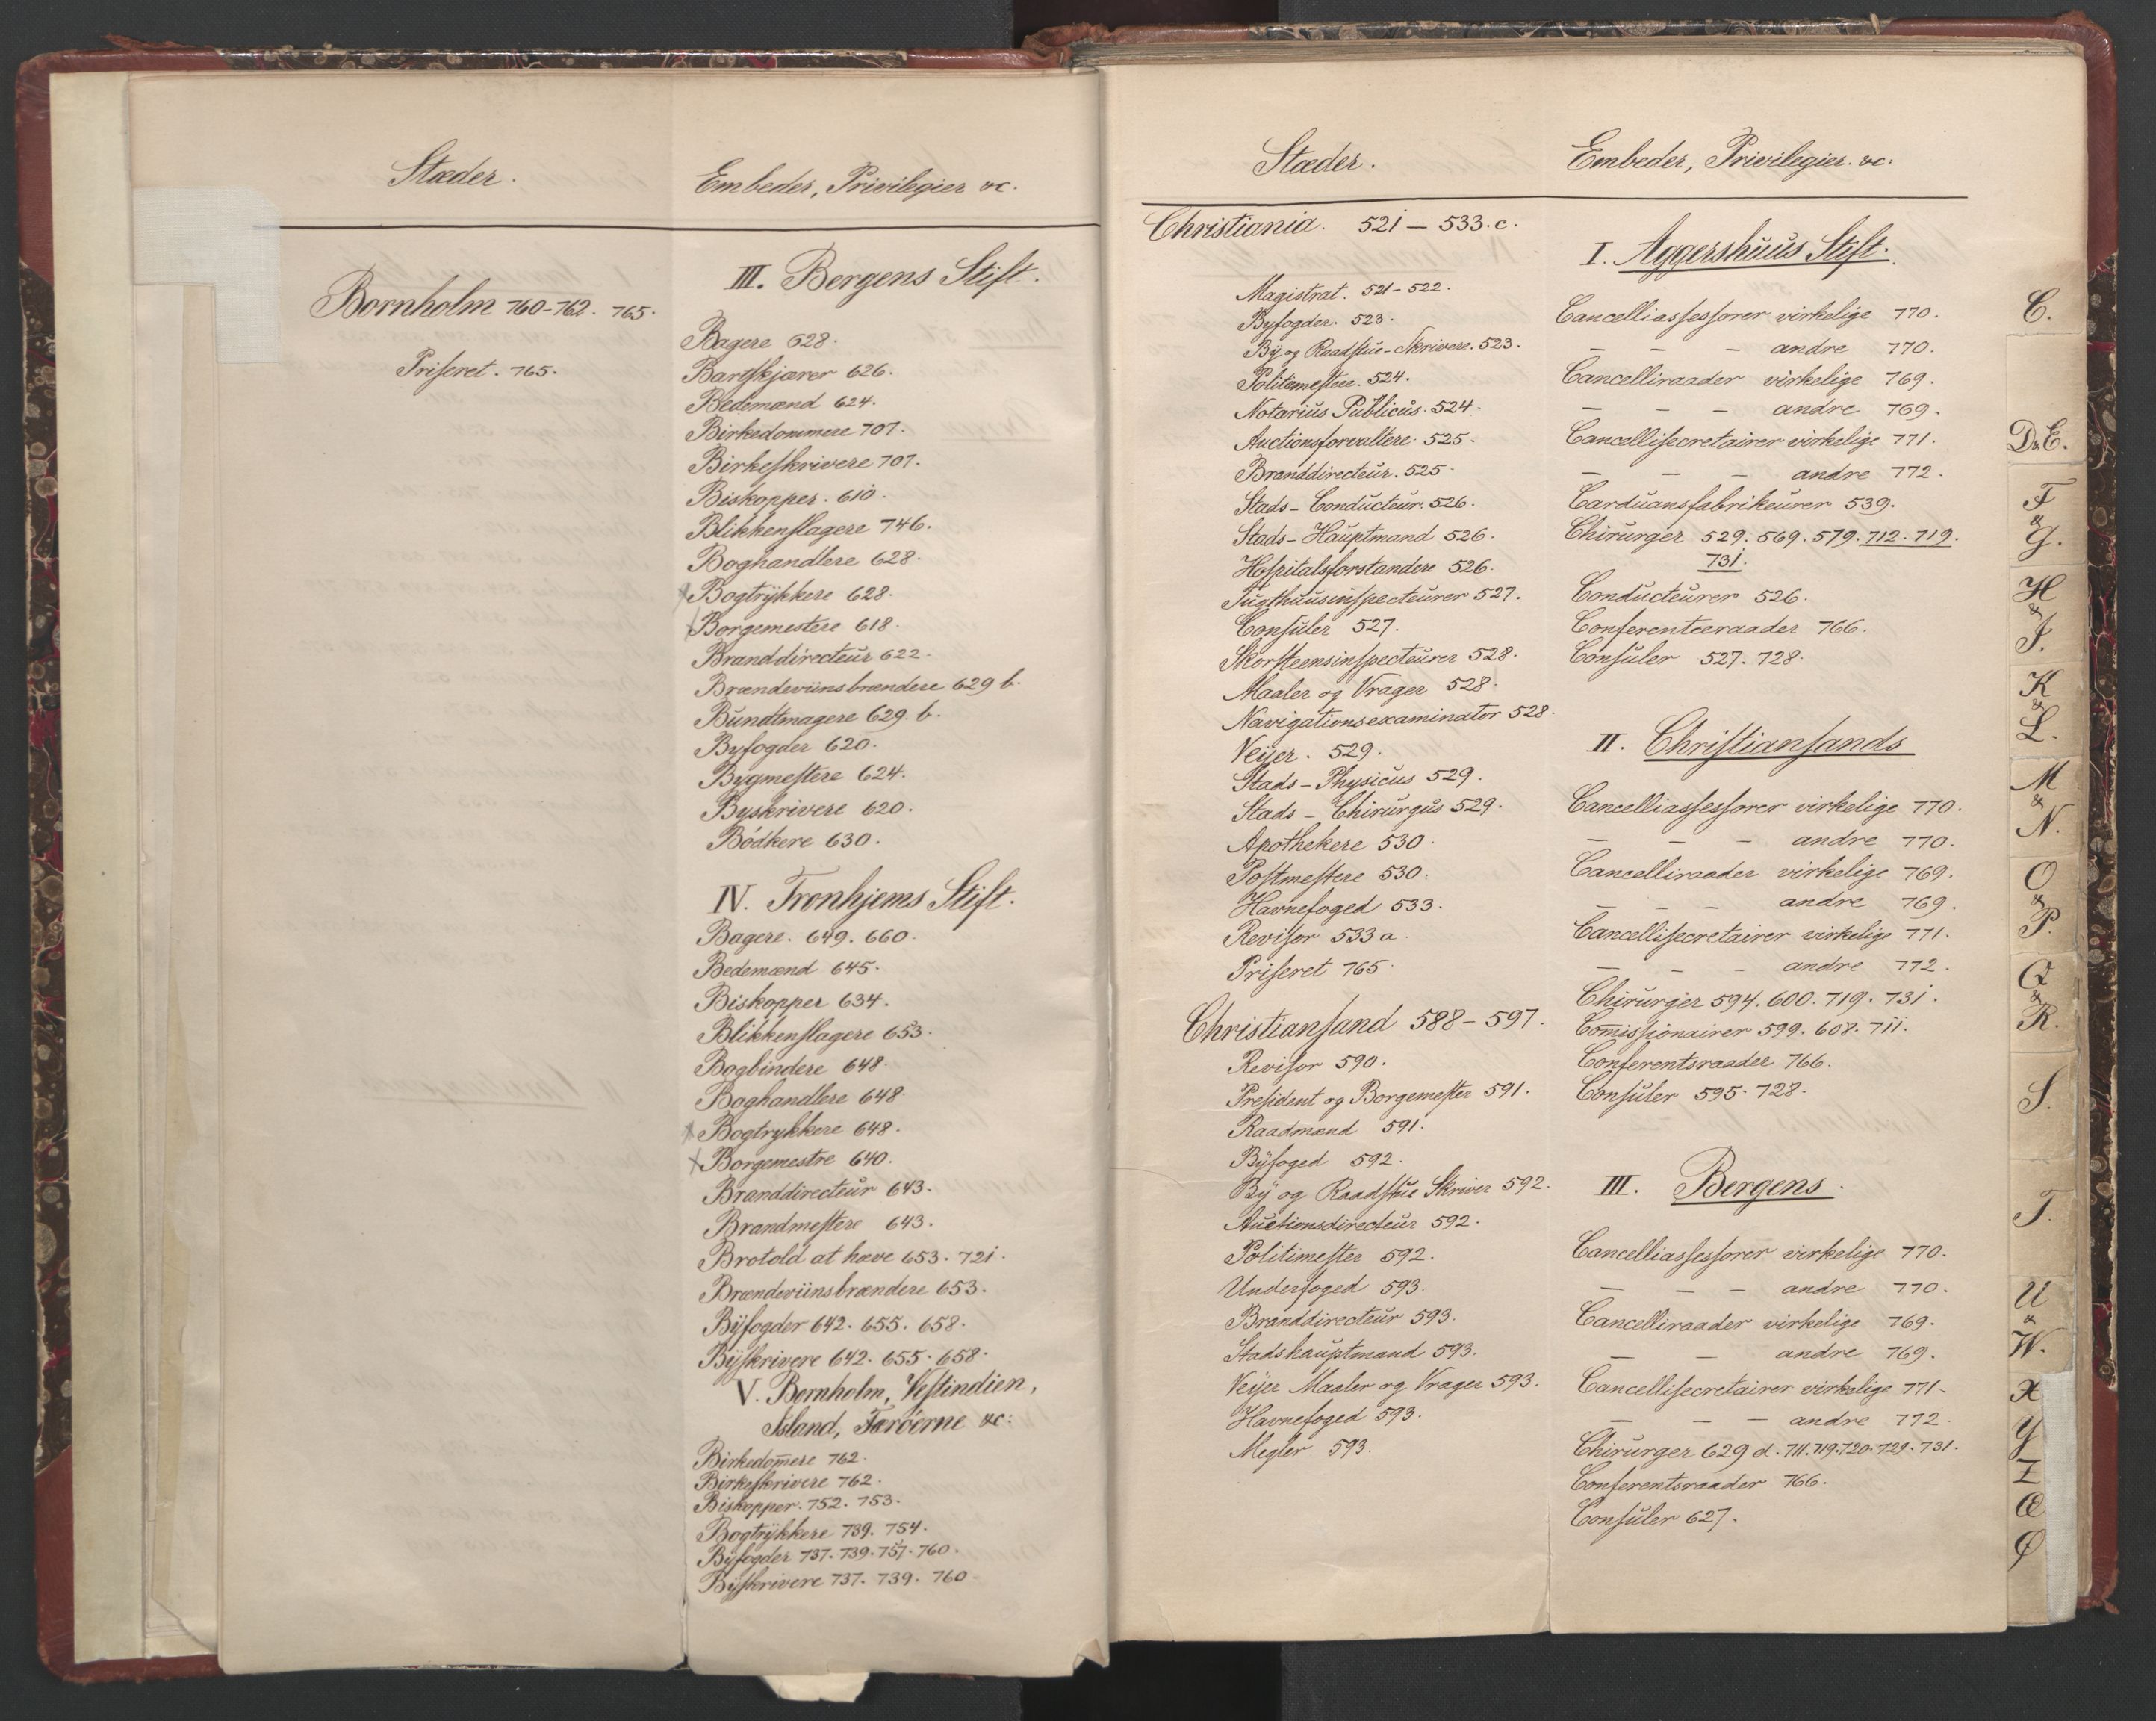 Stæder.
Bornholm 760-762. 765.
Priseret. 765.
Embeder, Privilegier &c.
III. Bergens Stift.
Bagere 628.
Bartskjærer 626.
Bedemænd 624.
Birkedommere 707.
Birkeskrivere 707.
Biskopper. 610.
Blikkenslagere 746.
Boghandlere 628.
Bogtrÿkkere 628.
Borgemestere 618.
Branddirecteur 622.
Brændeviinsbrændere 629 b.
Bundtmagere 629. b.
Byfogder 620.
Bygmestere 624.
Byskrivere 620.
Bödkere 630.
IV. Tronhjems Stift.
Bagere. 649. 660.
Bedemænd 645.
Biskopper 634.
Blikkenslagere 653.
Bogbindere 648.
Boghandlere 648.
Bogtrykkere 648.
Borgemestre 640.
Branddirecteur 643.
Brandmestere 643.
Brotold at hæve 653. 721.
Brændeviinsbrændere 653.
Bÿfogder 642. 655. 658.
Bÿskrivere 642. 655. 658.
V. Bornholm, Vestindien,
Island, Færöerne &c:
Birkedom̄ere 762.
Birkeskrivere 762.
Biskopper. 752. 753.
Bogtrÿkkere 739. 754.
Bÿfogder 737. 739. 757. 760.
Bÿskrivere 737. 739. 760.
Stæder.
Christiania. 521 — 533. c.
Magistrat. 521-522.
Byfogder. 523.
Bÿ og Raadstue-Skrivere. 523.
Politimestere. 524.
Notarius Publicus. 524.
Auctionsforvaltere. 525.
Branddirecteur. 525.
Stads-Conducteur. 526.
Stads-Hauptmand 526.
Hospitalsforstandere 526.
Tugthuusinspecteurer 527.
Consuler 527.
Skorsteensinspecteurer 528.
Maaler og Vrager 528.
Navigationsexaminator 528.
Veÿer. 529.
Stads-Physicus 529.
Stads-Chirurgus 529.
Apothekere 530.
Postmestere 530.
Havnefoged 533.
Revisor 533 a.
Priseret 765.
Christiansand 588-597.
Revisor 590.
President og Borgemester 591.
Raadmænd 591.
Bÿfoged 592.
Bÿ og Raadstue Skriver 592.
Auctionsdirecteur 592.
Politimester 592.
Underfoged 593.
Branddirecteur 593.
Stadshauptmand 593.
Veÿer Maaler og Vrager 593.
Havnefoged 593.
Megler 593.
Embeder, Privilegier. &c:
I. Aggershuus Stift.
Cancelliassessorer virkelige 770.
— — — andre 770.
Cancelliraader virkelige 769.
— — — andre 769.
Cancellisecretairer virkelige 771.
— — — andre 772.
Carduansfabrikeurer 539.
Chirurger 529. 569. 579. 712. 719.
731.
Conducteurer 526.
Conferenteeraader 766.
Consuler 527. 728.
II. Christiansands
Cancelliassessorer virkelige 770.
— — — andre 770.
Cancelliraader virkelige 769.
— — — andre 769.
Cancellisecretairer virkelige 771.
— — — andre 772.
Chirurger 594. 600. 719. 731.
Com̄issionairer 599. 608. 711.
Conferentsraader 766.
Consuler 595. 728.
III. Bergens.
Cancelliassessorer virkelige 770.
— — — andre 770.
Cancelliraader virkelige 769.
— — andre 769.
Cancellisecretairer virkelige 771.
— — — andre 772.
Chirurger 629 d. 711. 719. 720. 729. 731.
Conferentsraader 766.
Consuler 627.
C.
D&E.
F
&
G.
H
&
I.
K
&
L.
M
&
N.
O
&
P.
Q
&
R.
S.
T.
U
&
W.
X
Y
Z
Æ
Ø